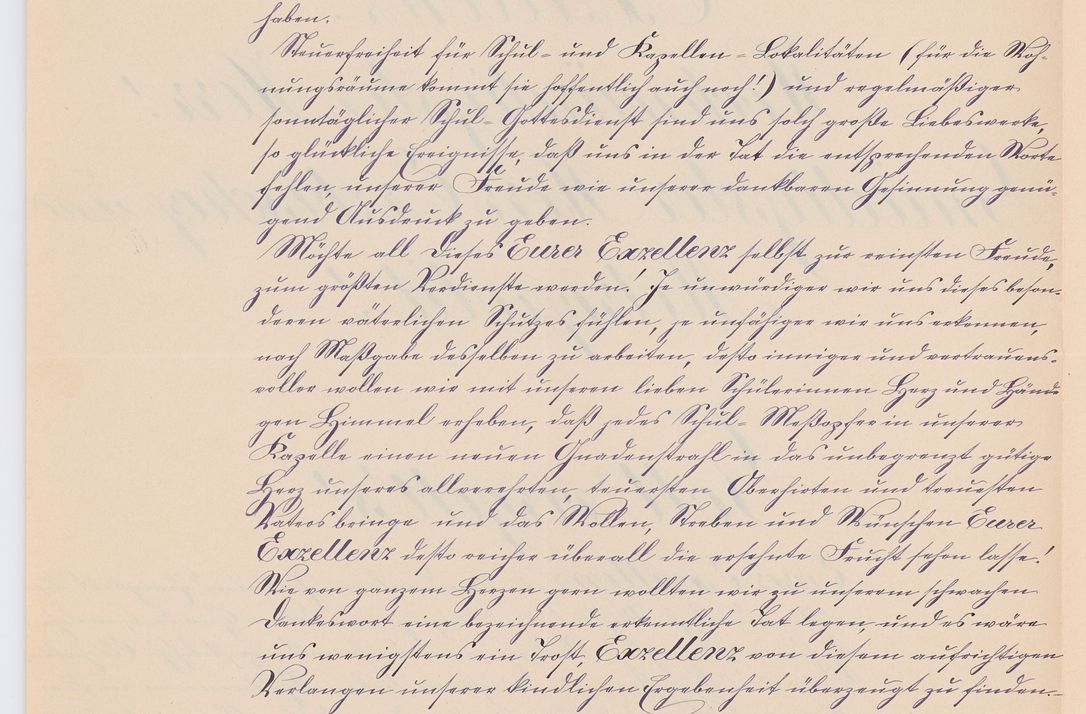 haben.
Steuerfreiheit für Schul- und Kapellen-Lokalitäten (für die Woh-
nungsräume kommt sie hoffentlich auch noch!) und regelmäßiger
sonntäglicher Schul-Gottesdienst sind uns solch große Liebeswerke,
so glückliche Ereignisse, daß uns in der Tat die entsprechenden Worte
fehlen, unserer Freude wie unserer dankbaren Gesinnung genü-
gend Ausdruck zu geben.
Möchte all dieses Eurer Exzellenz selbst zur reinsten Freude,
zum größten Verdienste werden! Je unwürdiger wir uns dieses beson-
deren väterlichen Schutzes fühlen, je unfähiger wir uns erkennen,
nach Maßgabe desselben zu arbeiten, desto inniger und vertrauens-
voller wollen wir mit unseren lieben Schülerinnen Herz und Hände
gen Himmel erheben, daß jedes Schul-Meßopfer in unserer
Kapelle einen neuen Gnadenstrahl in das unbegrenzt gütige
Herz unseres allverehrten, teuersten Oberhirten und treuesten
Vaters bringe und das Wollen, Streben und Wünschen Eurer
Exzellenz desto reicher überall die ersehnte Frucht sehen lasse!
Wie von ganzem Herzen gern wollten wir zu unserem schwachen
Dankeswort eine bezeichnende erkenntliche Tat legen, und es wäre
uns wenigstens ein Trost, Exzellenz von diesem aufrichtigen
Verlangen unserer kindlichen Ergebenheit überzeugt zu finden.-